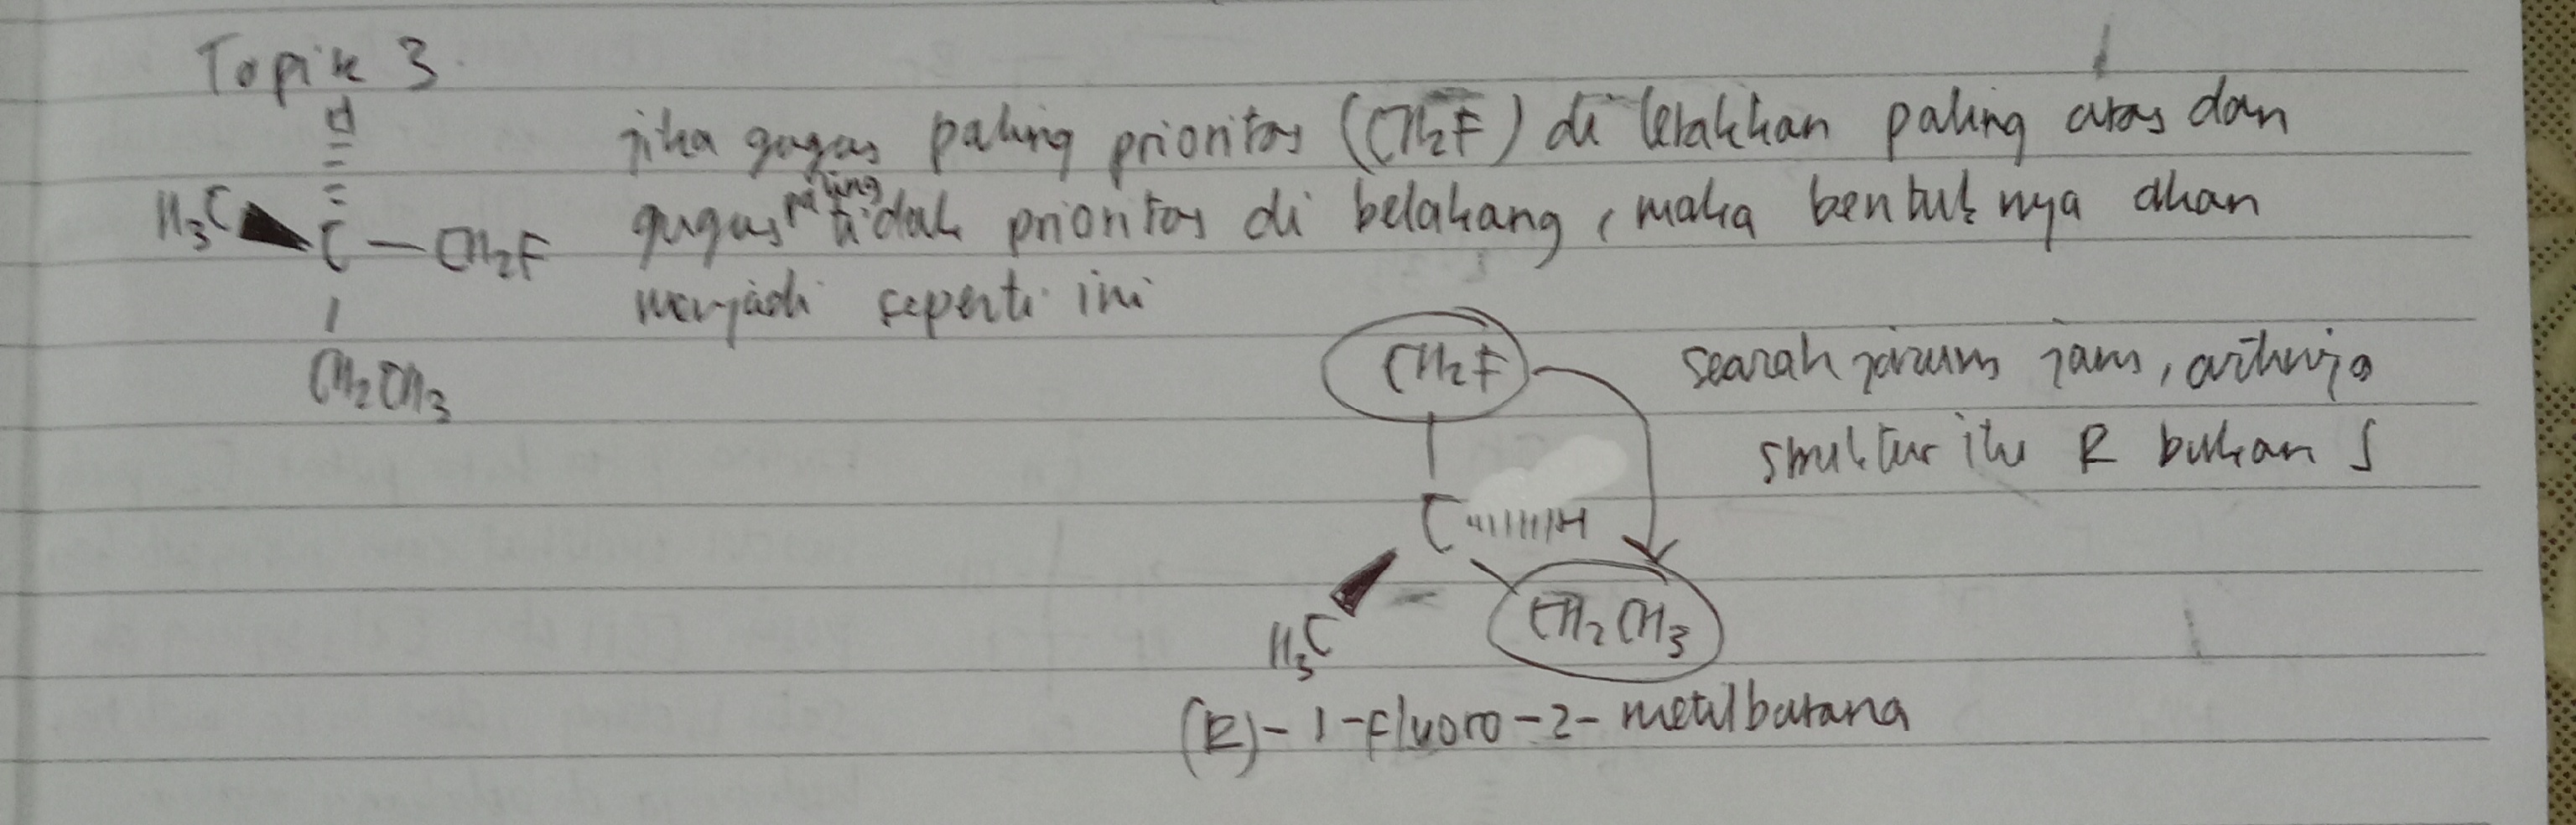 Topik 3.
H
H₃C C — CH₂F
CH₂CH₃
jika gugus paling prioritas (CH₂F) di letakkan paling atas dan
gugus paling tidak prioritas di belakang, maka bentuknya akan
menjadi seperti ini
CH₂F
C H
H₃C
CH₂CH₃
searah jarum jam, artinya
struktur itu R bukan S
(R)-1-Fluoro-2-metilbutana